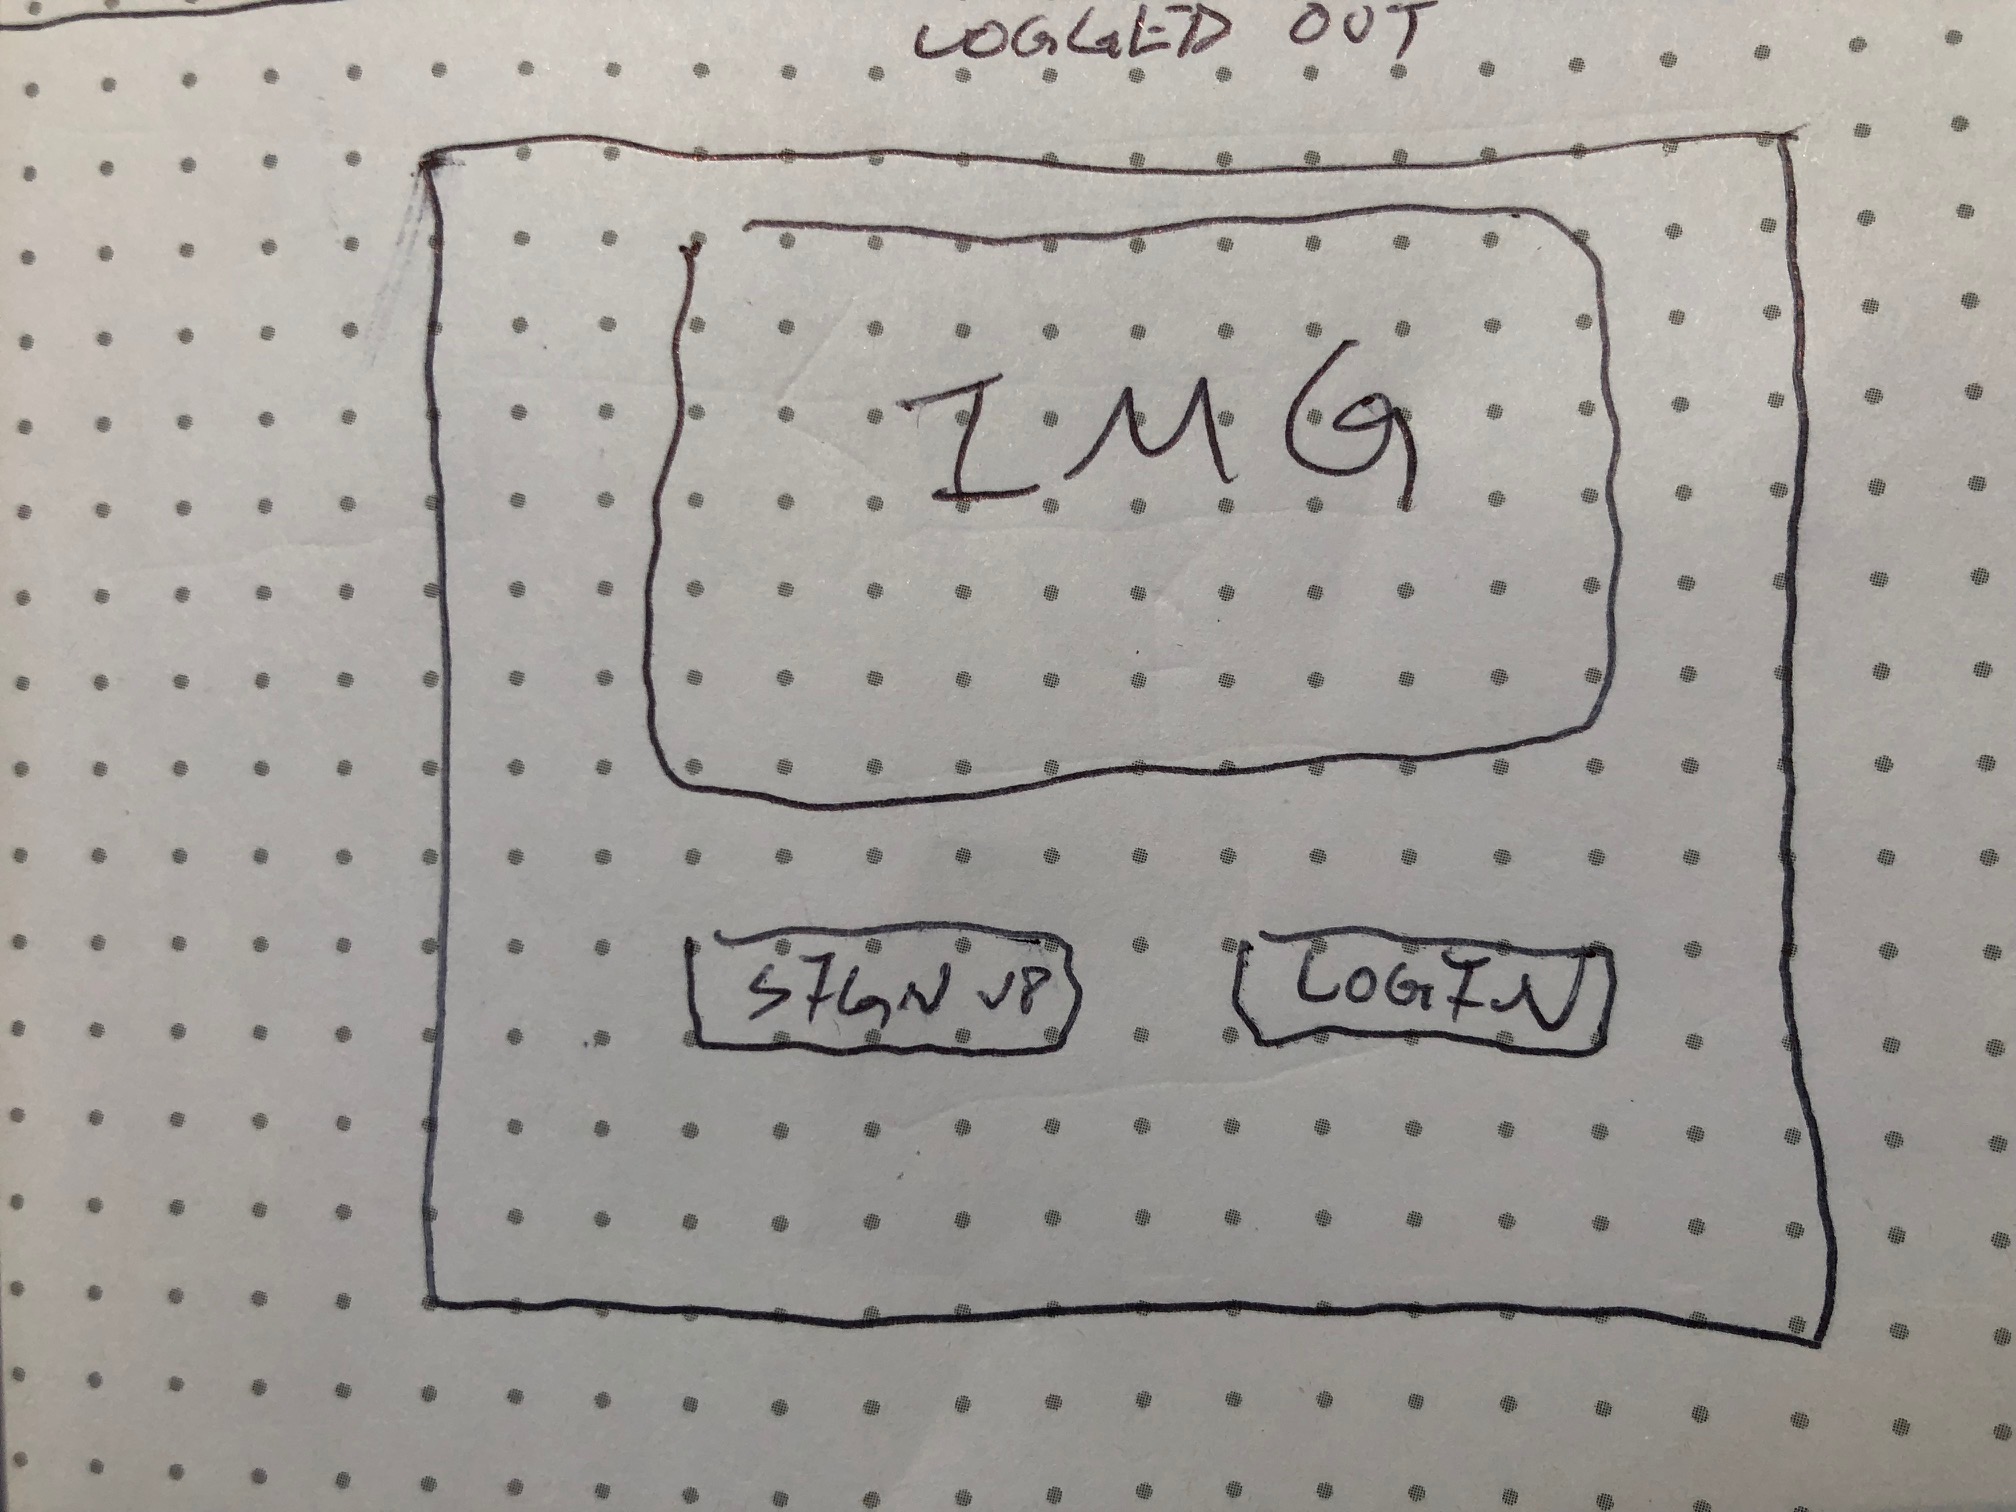 LOGGED OUT
IMG
SIGN UP
LOGIN